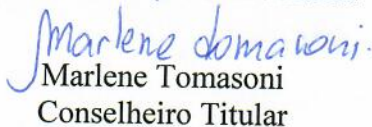 Marlene Tomasoni.
Marlene Tomasoni
Conselheiro Titular